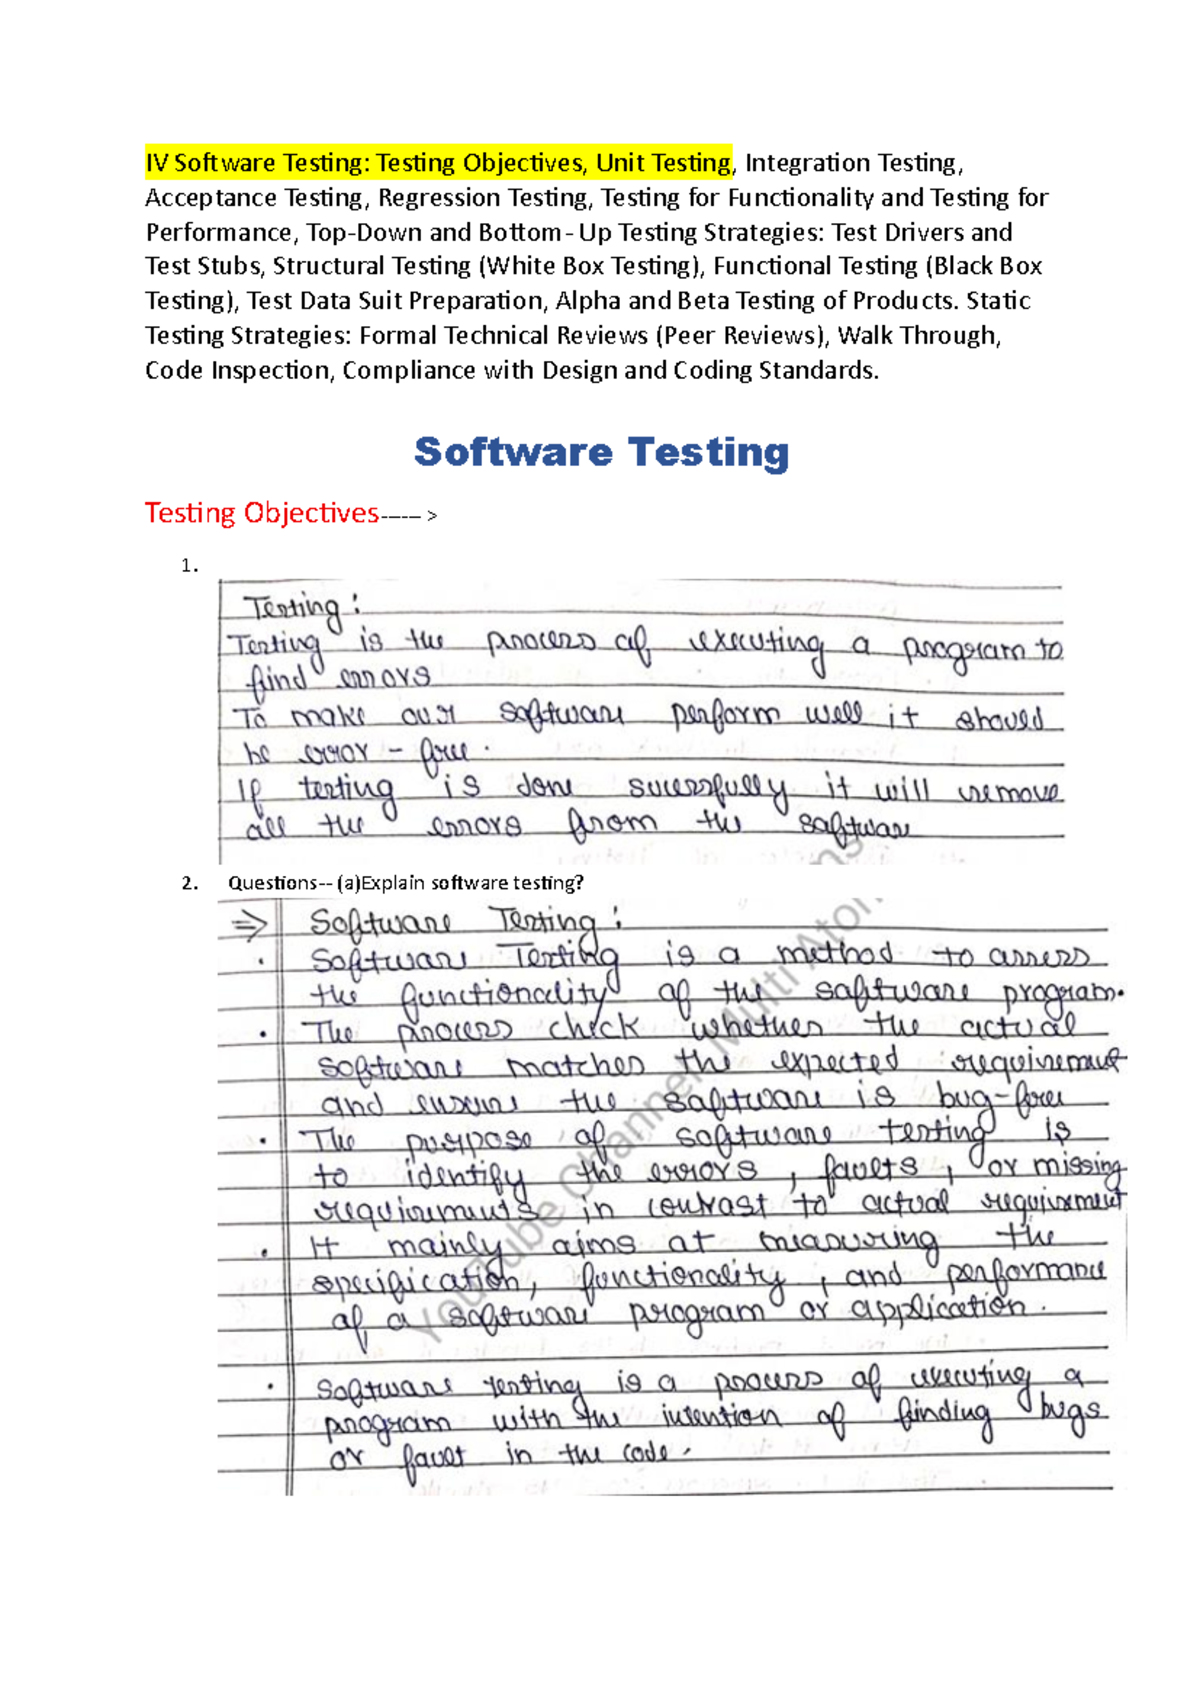 IV Software Testing: Testing Objectives, Unit Testing, Integration Testing,
Acceptance Testing, Regression Testing, Testing for Functionality and Testing for
Performance, Top-Down and Bottom- Up Testing Strategies: Test Drivers and
Test Stubs, Structural Testing (White Box Testing), Functional Testing (Black Box
Testing), Test Data Suit Preparation, Alpha and Beta Testing of Products. Static
Testing Strategies: Formal Technical Reviews (Peer Reviews), Walk Through,
Code Inspection, Compliance with Design and Coding Standards.
Software Testing
Testing Objectives----- >
1.
Testing :
Testing is the process of executing a program to
find errors
To make our software perform well it should
be error - free .
If testing is done sucessfully it will remove
all the errors from the software
2. Questions-- (a)Explain software testing?
⇒ Software Testing :
• Software Testing is a method to assess
the functionality of the software program.
• The process check whether the actual
software matches the expected requirement
and ensure the software is bug-free
• The purpose of software testing is
to identify the errors, faults, or missing
requirements in contrast to actual requirement
• It mainly aims at measuring the
specification, functionality, and performance
of a software program or application.
• Software testing is a process of executing a
program with the intention of finding bugs
or fault in the code.
YouTube Channel: Multi Atoms